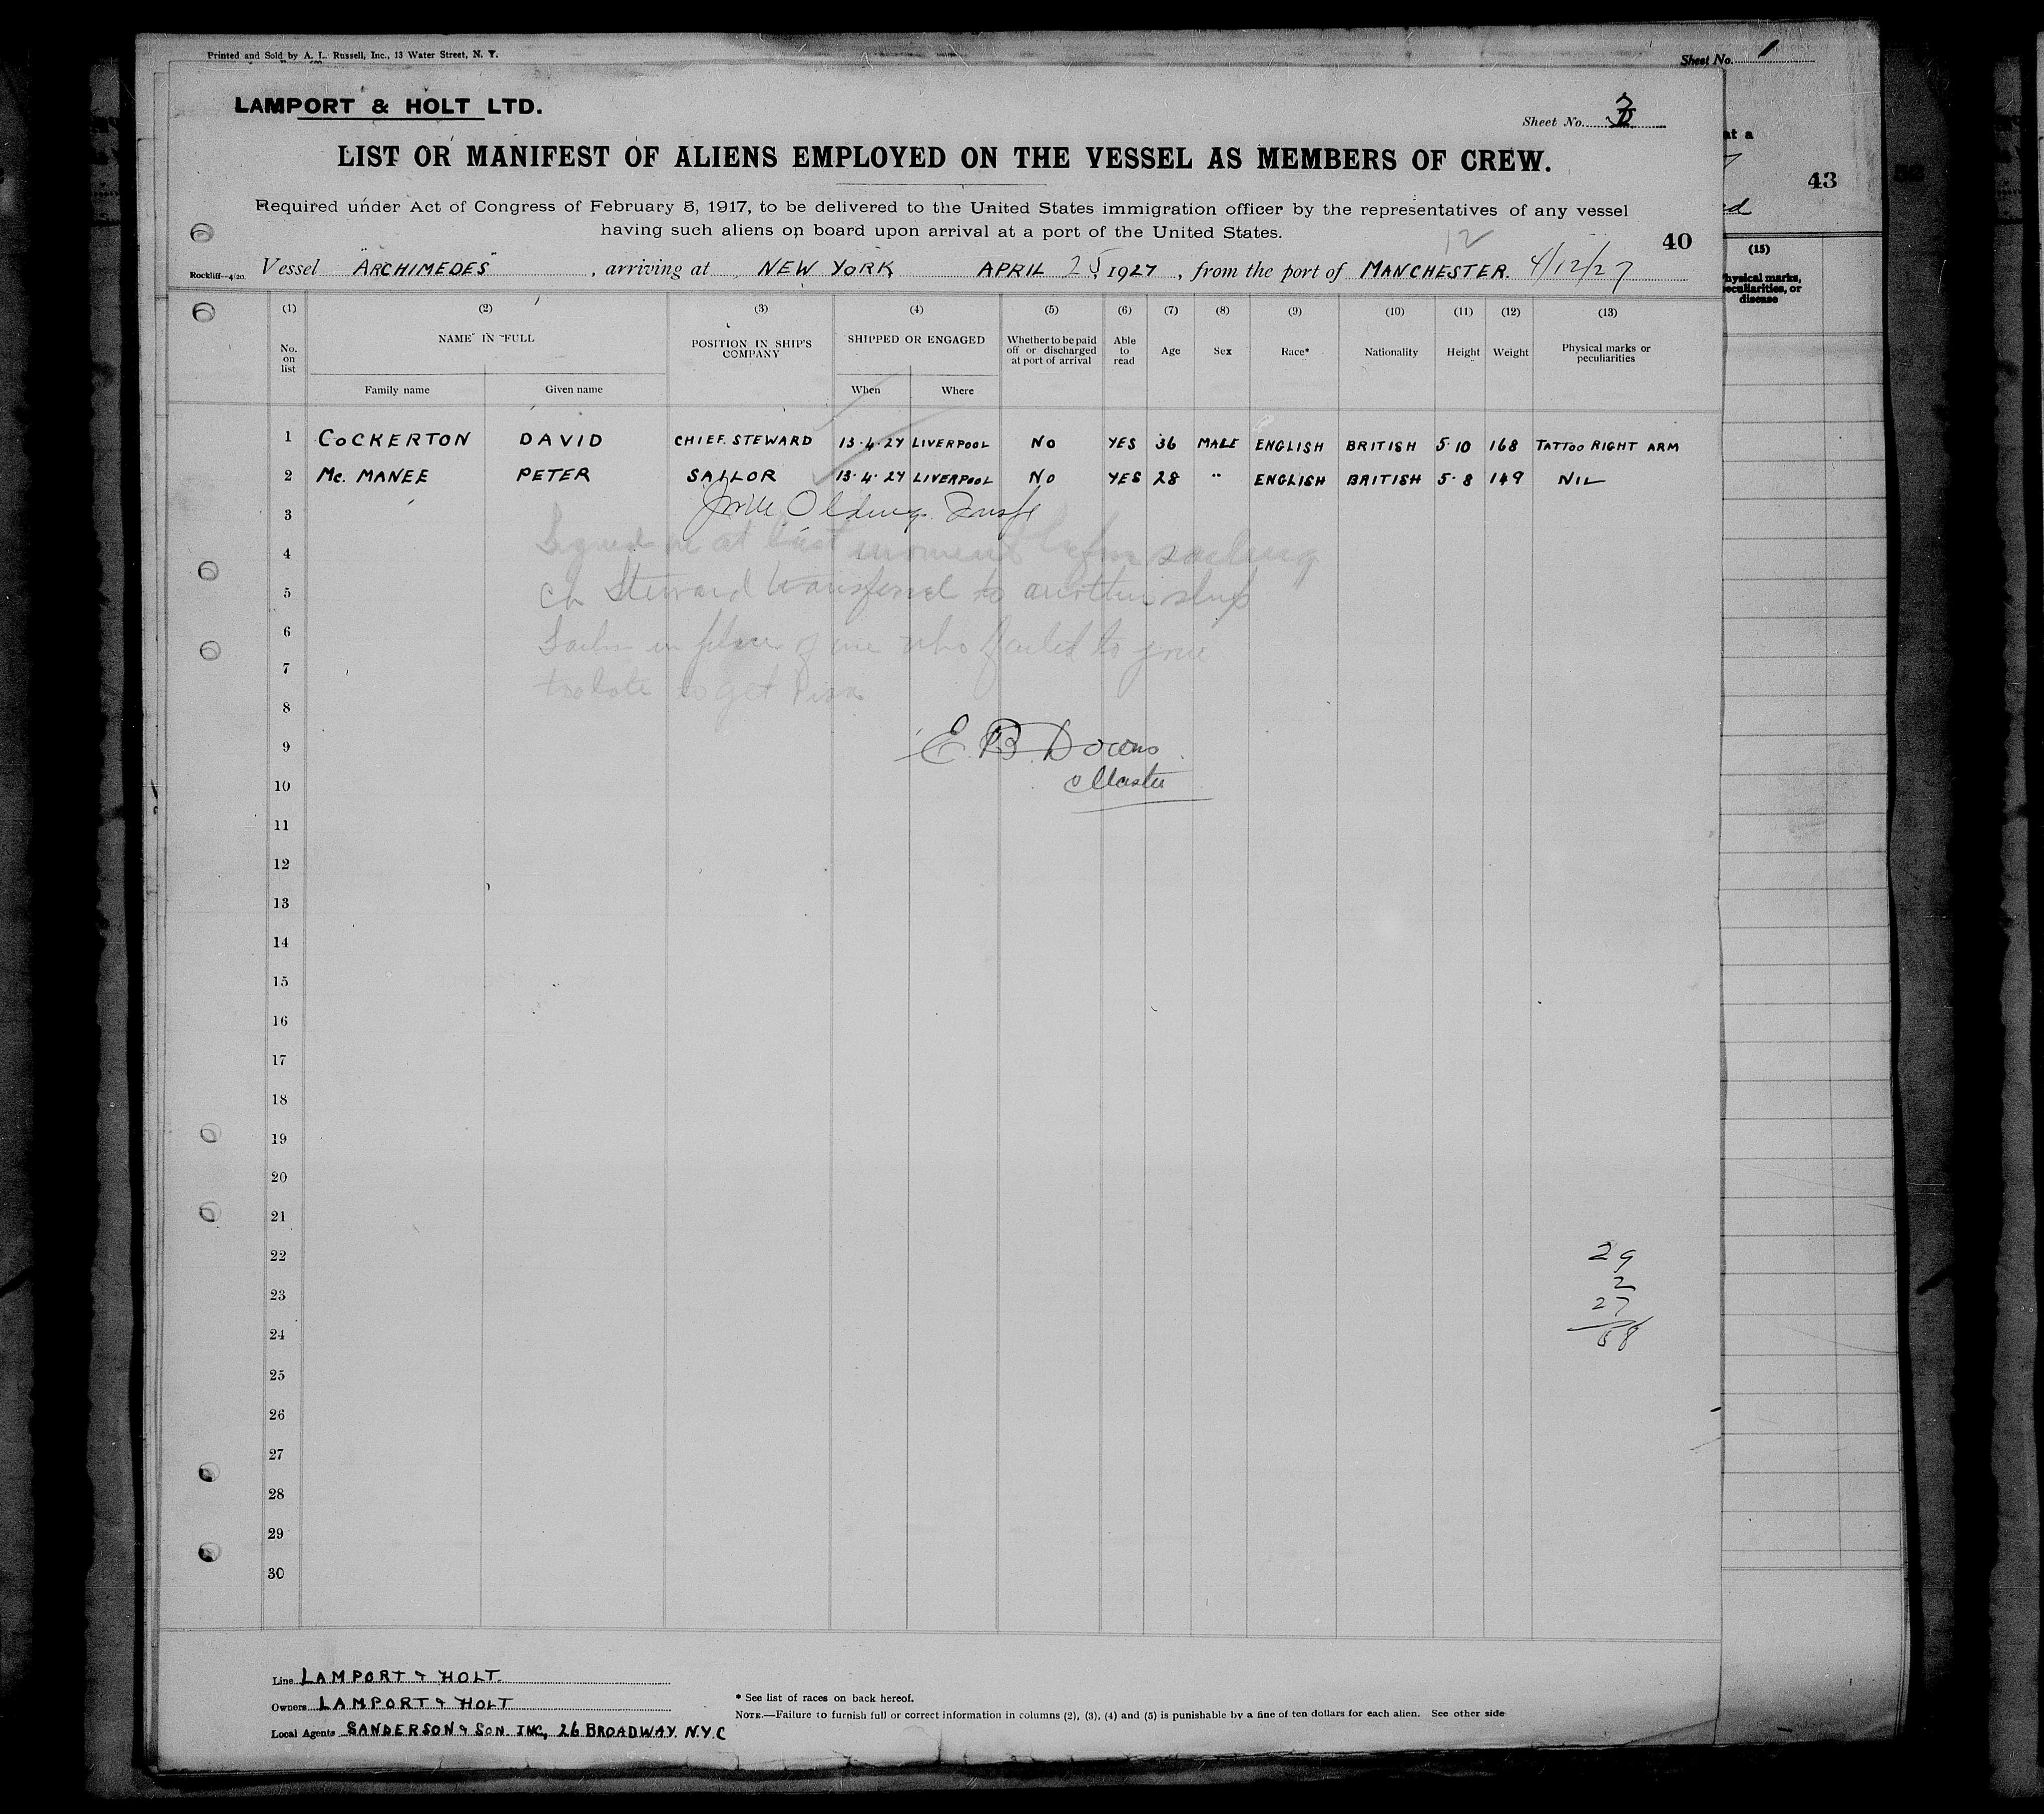 Printed and Sold by A. L. Russell, Inc., 13 Water Street, N. Y.
Sheet No. 1
LAMPORT & HOLT LTD.
Sheet No. 3
at a
LIST OR MANIFEST OF ALIENS EMPLOYED ON THE VESSEL AS MEMBERS OF CREW.
43
Required under Act of Congress of February 5, 1917, to be delivered to the United States immigration officer by the representatives of any vessel
having such aliens on board upon arrival at a port of the United States.
12
40
Rockliff—4/20.
Vessel "ARCHIMEDES", arriving at NEW YORK APRIL 25 1927, from the port of MANCHESTER. 4/12/27
(15)
Physical marks, peculiarities, or disease
(1) (2) (3) (4) (5) (6) (7) (8) (9) (10) (11) (12) (13)
No. on list NAME IN FULL POSITION IN SHIP'S COMPANY SHIPPED OR ENGAGED Whether to be paid off or discharged at port of arrival Able to read Age Sex Race* Nationality Height Weight Physical marks or peculiarities
Family name Given name When Where
1 COCKERTON DAVID CHIEF. STEWARD 13·4·27 LIVERPOOL NO YES 36 MALE ENGLISH BRITISH 5·10 168 TATTOO RIGHT ARM
2 Mc. MANEE PETER SAILOR 13·4·27 LIVERPOOL NO YES 28 " ENGLISH BRITISH 5·8 149 NIL
3
4 Signed on at last moment before sailing
5 Ch Steward transferred to another ship
6 Sailor in place of one who failed to join
7 too late to get visa
8
9 E. B. Downs
10 Master
11
12
13
14
15
16
17
18
19
20
21
22 29
23 2
27
24 58
25
26
27
28
29
30
Line LAMPORT & HOLT.
Owners LAMPORT & HOLT
* See list of races on back hereof.
NOTE.—Failure to furnish full or correct information in columns (2), (3), (4) and (5) is punishable by a fine of ten dollars for each alien. See other side
Local Agents SANDERSON & SON. INC, 26 BROADWAY. N.Y.C